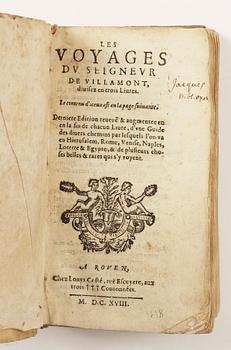 LES
VOYAGES
DV SEIGNEVR
DE VILLAMONT,
diuisez en trois Liures.
Le contenu d'iceux est en la page suiuante.
Derniere Edition reueuë & augmentee en
en la fin de chacun Liure, d'vne Guide
des diuers chemins par lesquels l'on va
en Hierusalem, Rome, Venise, Naples,
Lorette & Egypte, & de plusieurs cho-
ses belles & rares qui s'y voyent.
A ROVEN,
Chez Louys Costé, ruë Escuyere, aux
trois ††† Couronnées.
M. DC. XVIII.
Jacques